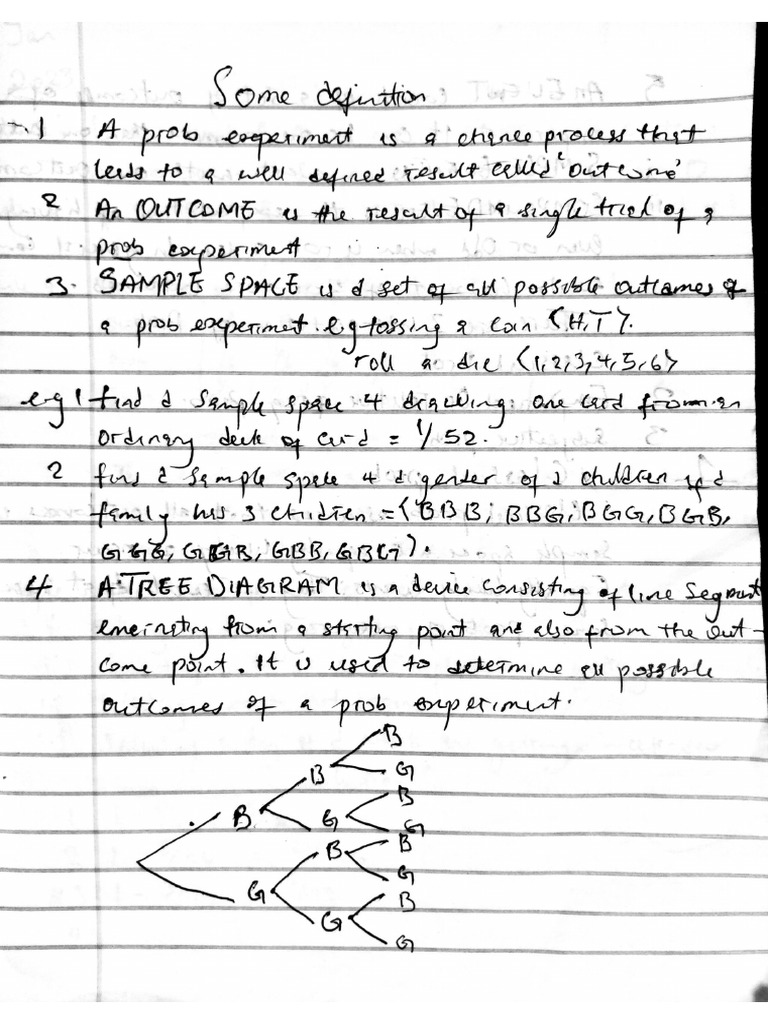 Some definition
1 A prob experiment is a chance process that
leads to a well defined result called 'outcome'
2 An OUTCOME is the result of a single trial of a
prob experiment
3. SAMPLE SPACE is d set of all possible outcomes of
a prob experiment. e.g tossing a coin {H,T}.
roll a die {1,2,3,4,5,6}
e.g 1 find d sample space 4 drawing one card from an
ordinary deck of card = 1/52.
2 find d sample space 4 d gender of d children if d
family has 3 children = {BBB, BBG, BGG, BGB,
GGG, GGB, GBB, GBG}.
4 A TREE DIAGRAM is a device consisting of line segment
emernating from a starting point and also from the out-
come point. It is used to determine all possible
outcomes of a prob experiment.
B
B G
B
B G G
B B
G G
B
G
G